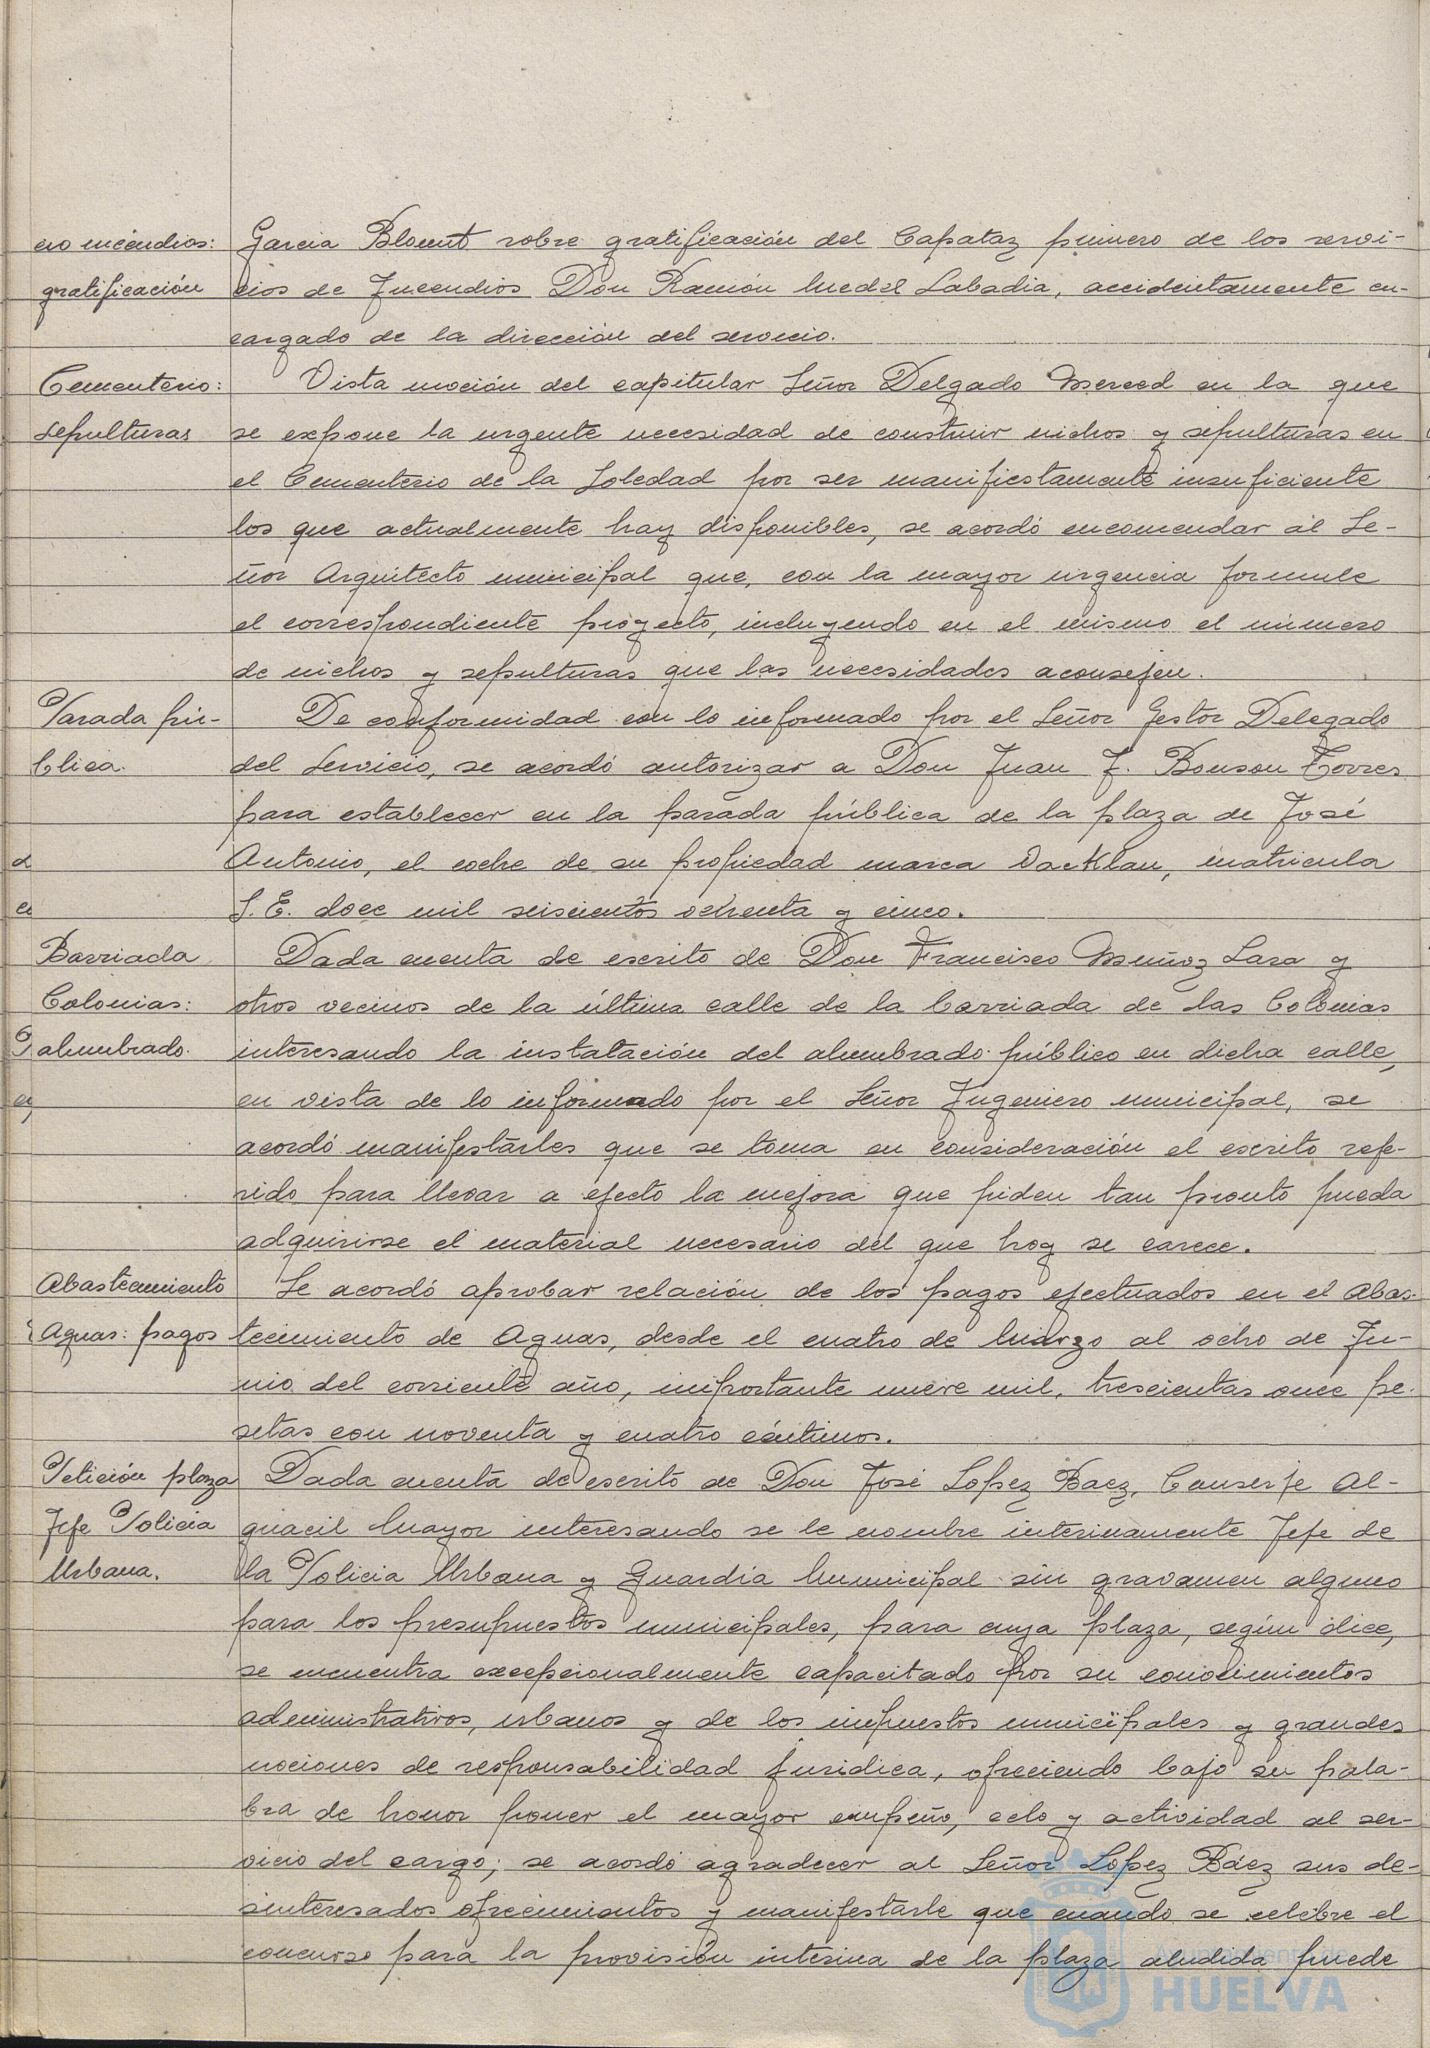 cio incendios:
gratificación
Garcia Blount sobre gratificación del Capataz primero de los servi-
cios de Incendios Don Ramón Medel Labadia, accidentamente en-
cargado de la dirección del servicio.
Cementerio:
sepulturas
Vista moción del capitular Señor Delgado Merced en la que
se expone la urgente necesidad de construir nichos y sepulturas en
el Cementerio de la Soledad por ser manifiestamente insuficiente
los que actualmente hay disponibles, se acordó encomendar al Se-
ñor Arquitecto municipal que, con la mayor urgencia formule
el correspondiente proyecto, incluyendo en el mismo el número
de nichos y sepulturas que las necesidades aconsejen.
Parada pú-
blica.
De conformidad con lo informado por el Señor Gestor Delegado
del Servicio, se acordó autorizar a Don Juan J. Bonson Torres
para establecer en la parada pública de la plaza de José
Antonio, el coche de su propiedad marca matricula
S.E. doce mil seiscientos ochenta y cinco.
Barriada
Colonias:
alumbrado.
Dada cuenta de escrito de Don Francisco Muñoz Lara y
otros vecinos de la última calle de la barriada de las Colonias
interesando la instalación del alumbrado público en dicha calle,
en vista de lo informado por el Señor Ingeniero municipal, se
acordó manifestarles que se toma en consideración el escrito refe-
rido para llevar a efecto la mejora que piden tan pronto pueda
adquirirse el material necesario del que hoy se carece.
Abastecimiento
Aguas: pagos
Se acordó aprobar relación de los pagos efectuados en el Abas-
tecimiento de Aguas, desde el cuatro de Marzo al ocho de Ju-
nio del corriente año, importante nueve mil, trescientas once pe-
setas con noventa y cuatro céntimos.
Petición plaza
Jefe Policia
Urbana.
Dada cuenta de escrito de Don José Lopez Baez, Conserje Al-
guacil Mayor interesando se le nombre interinamente Jefe de
la Policia Urbana y Guardia Municipal sin gravamen alguno
para los presupuestos municipales, para cuya plaza, según dice,
se encuentra excepcionalmente capacitado por su conocimientos
administrativos, urbanos y de los impuestos municipales y grandes
nociones de responsabilidad juridica, ofreciendo bajo su pala-
bra de honor poner el mayor empeño, celo y actividad al ser-
vicio del cargo; se acordó agradecer al Señor Lopez Báez sus de-
sinteresados ofrecimientos y manifestarle que cuando se celebre el
concurso para la provisión interina de la plaza aludida puede
Ayuntamiento de
HUELVA